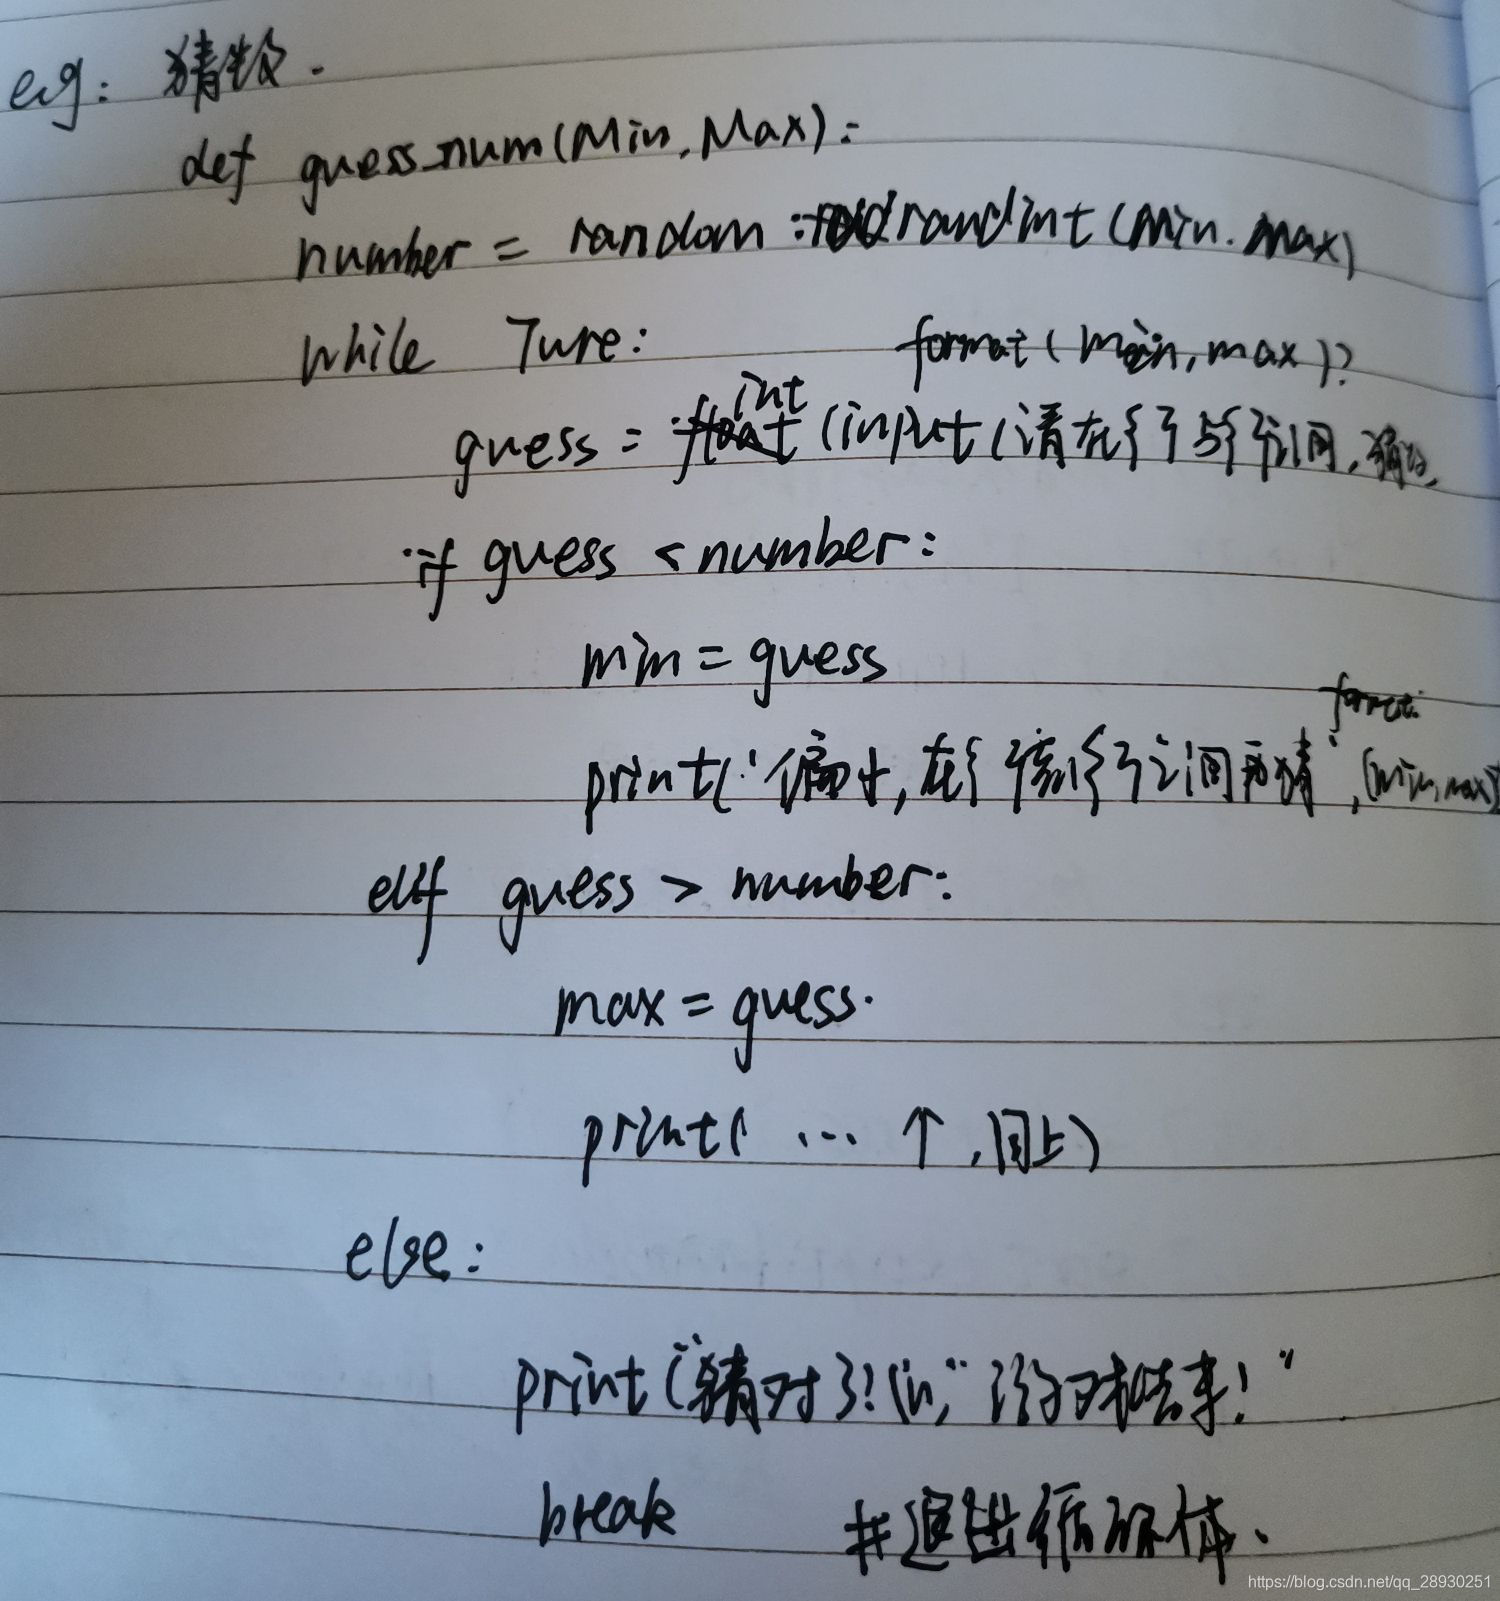 eg: 猜数.
def guess_num(Min, Max):
number = random.randint(Min. Max)
while Ture:
format(min, max)?
guess = int(input(请在{}与{}之间,
if guess < number:
min = guess
format
print("偏小,在{}到{}之间再猜",(min, max)
elif guess > number:
max = guess.
print( ... 个 , 同上)
else:
print("猜对了!\n," 对 结束!"
break #退出循环体、
https://blog.csdn.net/qq_28930251